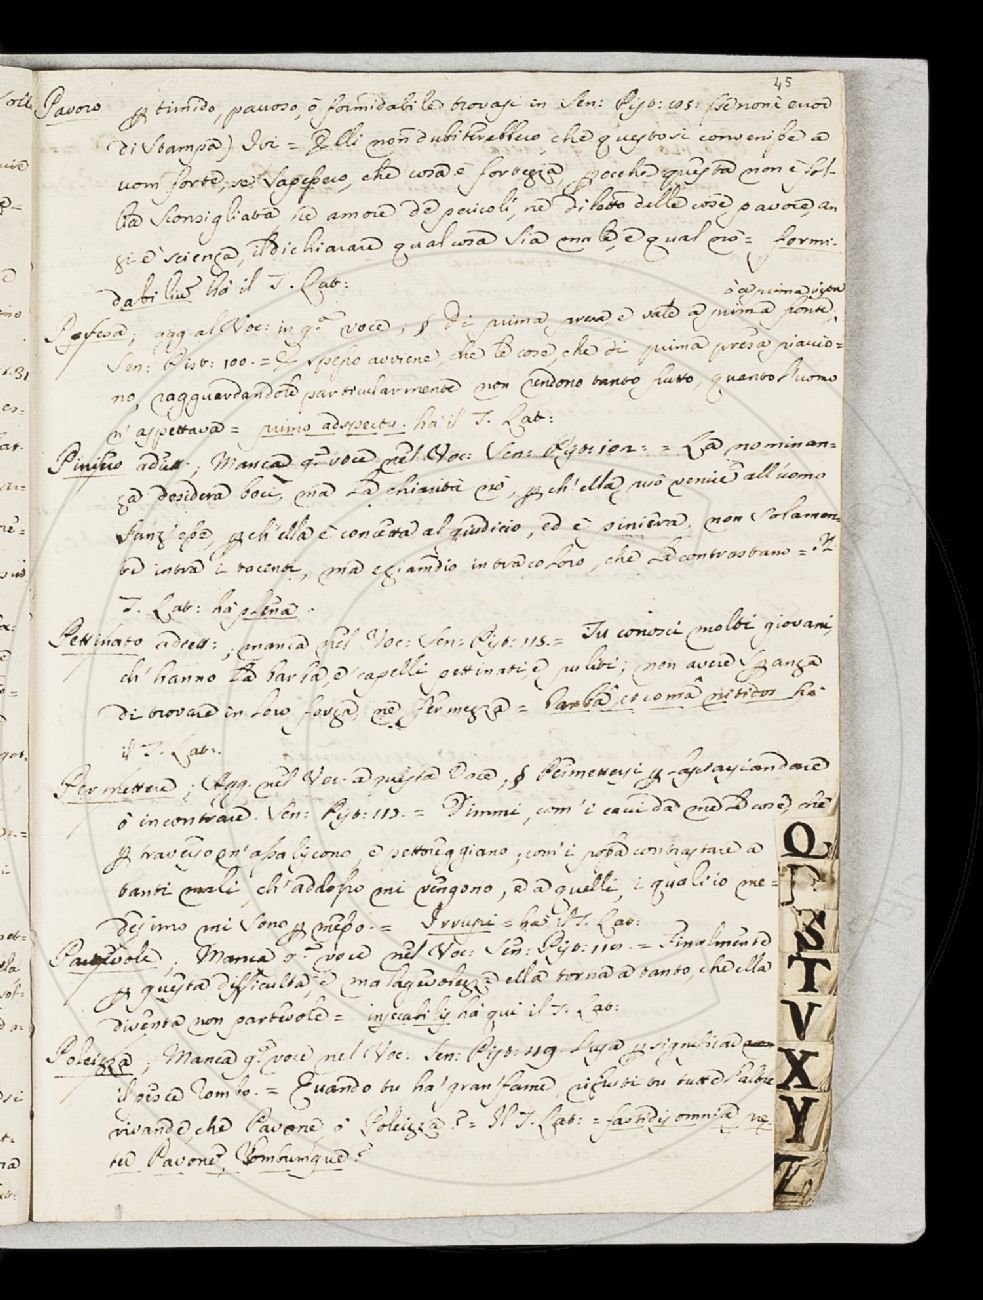 45
Pavoro ꝑ timido, pauroso, ò formidabile trovasi in Sen: Pist: 105: (se non è error
di Stampa) Ivi = Elli non dubiterebbero, che questo si convenisse a
uom forte, se sapessero, che cosa è fortezza, ꝑ cechè questa non è sol-
ta sconsigliata nè amore de' pericoli, nè diletto delle cose pavore, an
zi è scienza, il dichiarare qual cosa sia male, e qual nò = formi-
dabilium hà il T. Lat:
ò a prima vista
Presa; agg. al Voc: in q.ª voce, § Di prima presa, e vale a prima fonte,
Sen: Pist: 100. = E spesso avviene, che le cose, che di prima presa piaccio=
no, ragguardandole particularmente non rendono tanto frutto, quanto l'uomo
n' aspettava = primo adspectu. hà il T. Lat:
Piniero adiett:; Manca q.ª voce nel Voc: Sen: Pist: 102: = La nominan-
za desidera boci, ma la chiarità nò, ꝑ ch'ella può venire all'uomo
sanz' esse, ꝑ ch'ella è contatta al giudicio, ed è piniera, non solamen-
te intra i tacenti, ma eziamdio intra coloro, che la contrastano = Il
T. Lat: hà plena.
Pettinato adiett:; manca nel Voc: Sen: Pist: 115. = Tu conosci molti giovani,
ch'hanno la barba, e' capelli pettinati, e puliti; non avere speranza
di trovare in loro forza, nè fermezza = barbâ, et comâ nitidos hà
il T. Lat:.
Permettere; Agg. nel Voc. a questa voce, § Permettersi ꝑ lasciarsi andare
ò incontrare. Sen: Pist: 117. = Dimmi, com' i cacci da me le cose, che
ꝑ traverso m'assaliscono, e pettoreggiano; com' i possa contrastare a
tanti mali, ch'addosso mi vengono, ed a quelli, i quali io me=
desimo mi sono ꝑ messo. = Irrupi = hà il T. Lat:
Partevole; Manca q.ª voce nel Voc: Sen: Pist: 118. = Finalmente
ꝑ questa difficultà, e malagevolezza ella torna a tanto, che ella
diventa non partevole = insecabilis hà qui il T. Lat:
Poleizza; Manca q.ª voce nel Voc: Sen: Pist: 119. Lusa ꝑ significare
il pesce Rombo. = Quando tu ha' gran fame, rifiuti tu tutte l'altre
vivande, che Pavone, ò Poleizza? = Il T. Lat: = fastidis omnia præ
ter Pavonem, Rombumque?
Q
R
S
T
V
X
Y
Z